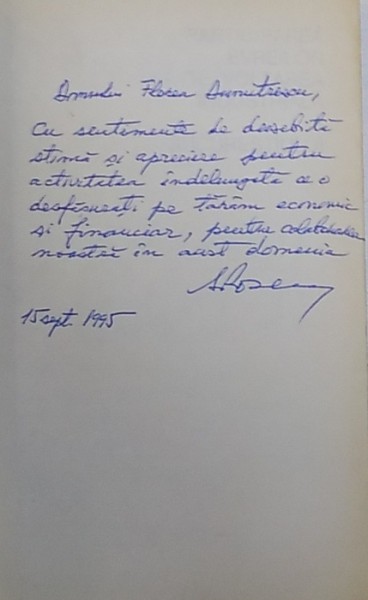 Domnului Florea Dumitrescu,
Cu sentimente de deosebită
stimă și apreciere pentru
activitatea îndelungată ce o
desfășurați pe tărâm economic
și financiar, pentru colaborarea
noastră în acest domeniu
15 sept. 1995